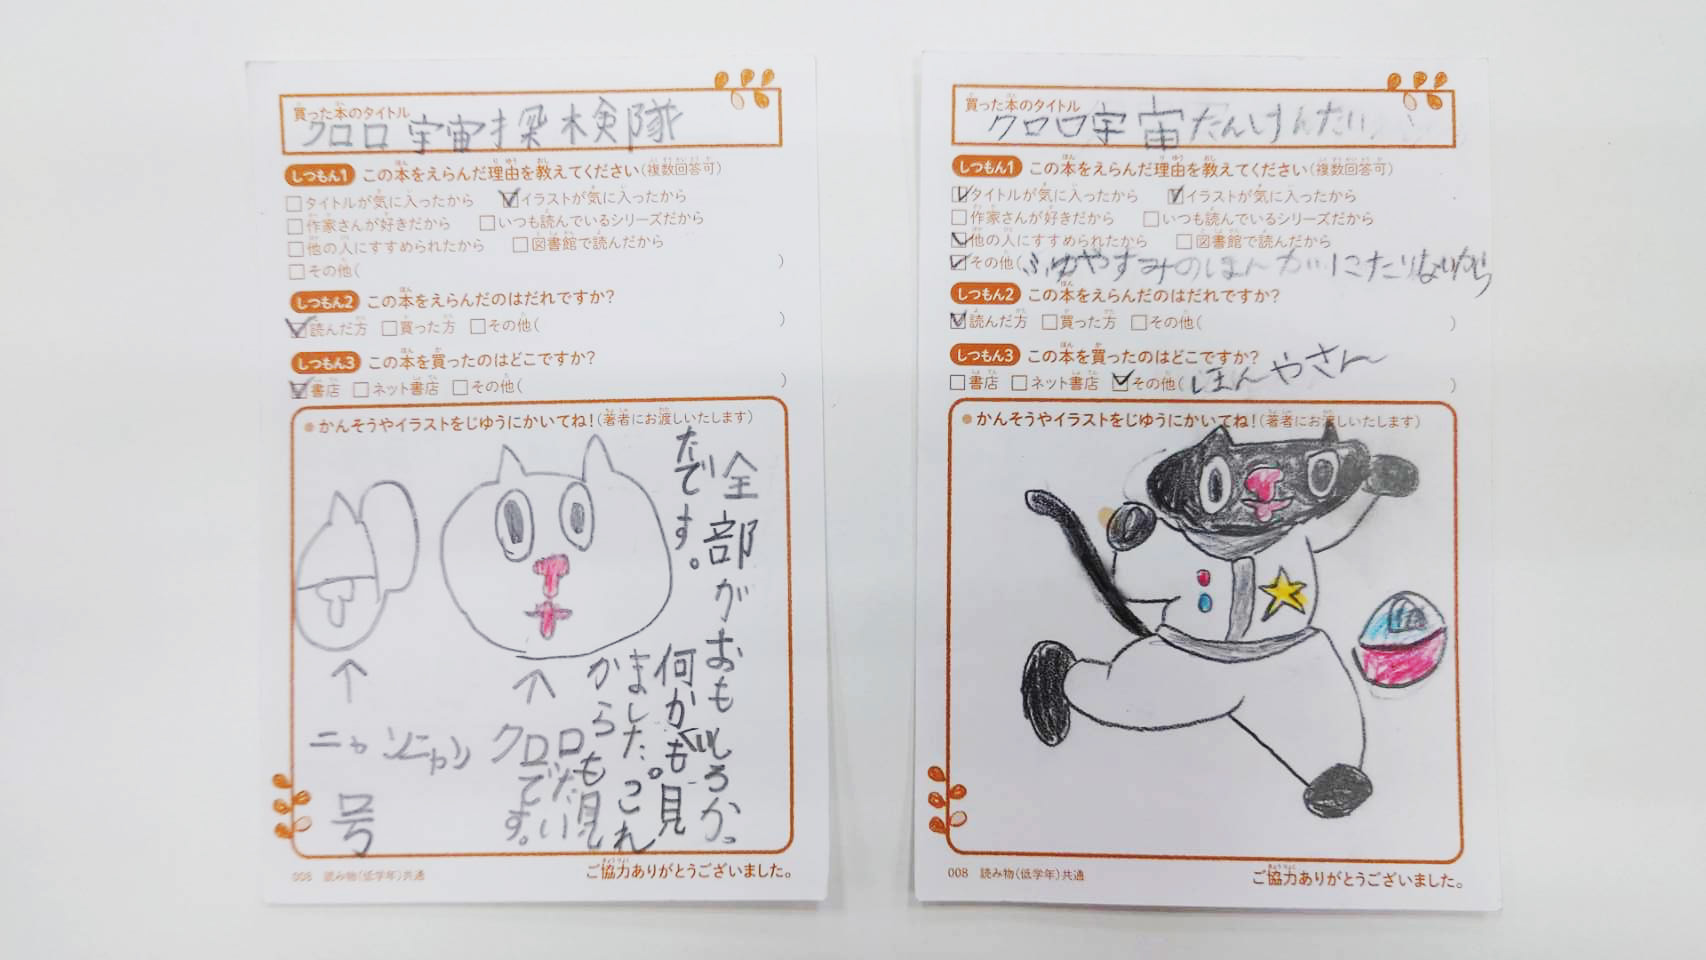 買った本のタイトル
クロロ宇宙探検隊
しつもん1 この本をえらんだ理由を教えてください(複数回答可)
タイトルが気に入ったから イラストが気に入ったから
作家さんが好きだから いつも読んでいるシリーズだから
他の人にすすめられたから 図書館で読んだから
その他( )
しつもん2 この本をえらんだのはだれですか?
読んだ方 買った方 その他( )
しつもん3 この本を買ったのはどこですか?
書店 ネット書店 その他( )
●かんそうやイラストをじゆうにかいてね!(著者にお渡しいたします)
全部がおもしろかっ
たです。
何かいも見
ました。これ
からも見
たい
です。
クロロ
ニャンニャン
号
008 読み物(低学年)共通
ご協力ありがとうございました。
買った本のタイトル
クロロ宇宙たんけんたい
しつもん1 この本をえらんだ理由を教えてください(複数回答可)
タイトルが気に入ったから イラストが気に入ったから
作家さんが好きだから いつも読んでいるシリーズだから
他の人にすすめられたから 図書館で読んだから
その他(ふゆやすみのほんがにたりないから
しつもん2 この本をえらんだのはだれですか?
読んだ方 買った方 その他( )
しつもん3 この本を買ったのはどこですか?
書店 ネット書店 その他(ほんやさん )
●かんそうやイラストをじゆうにかいてね!(著者にお渡しいたします)
008 読み物(低学年)共通
ご協力ありがとうございました。